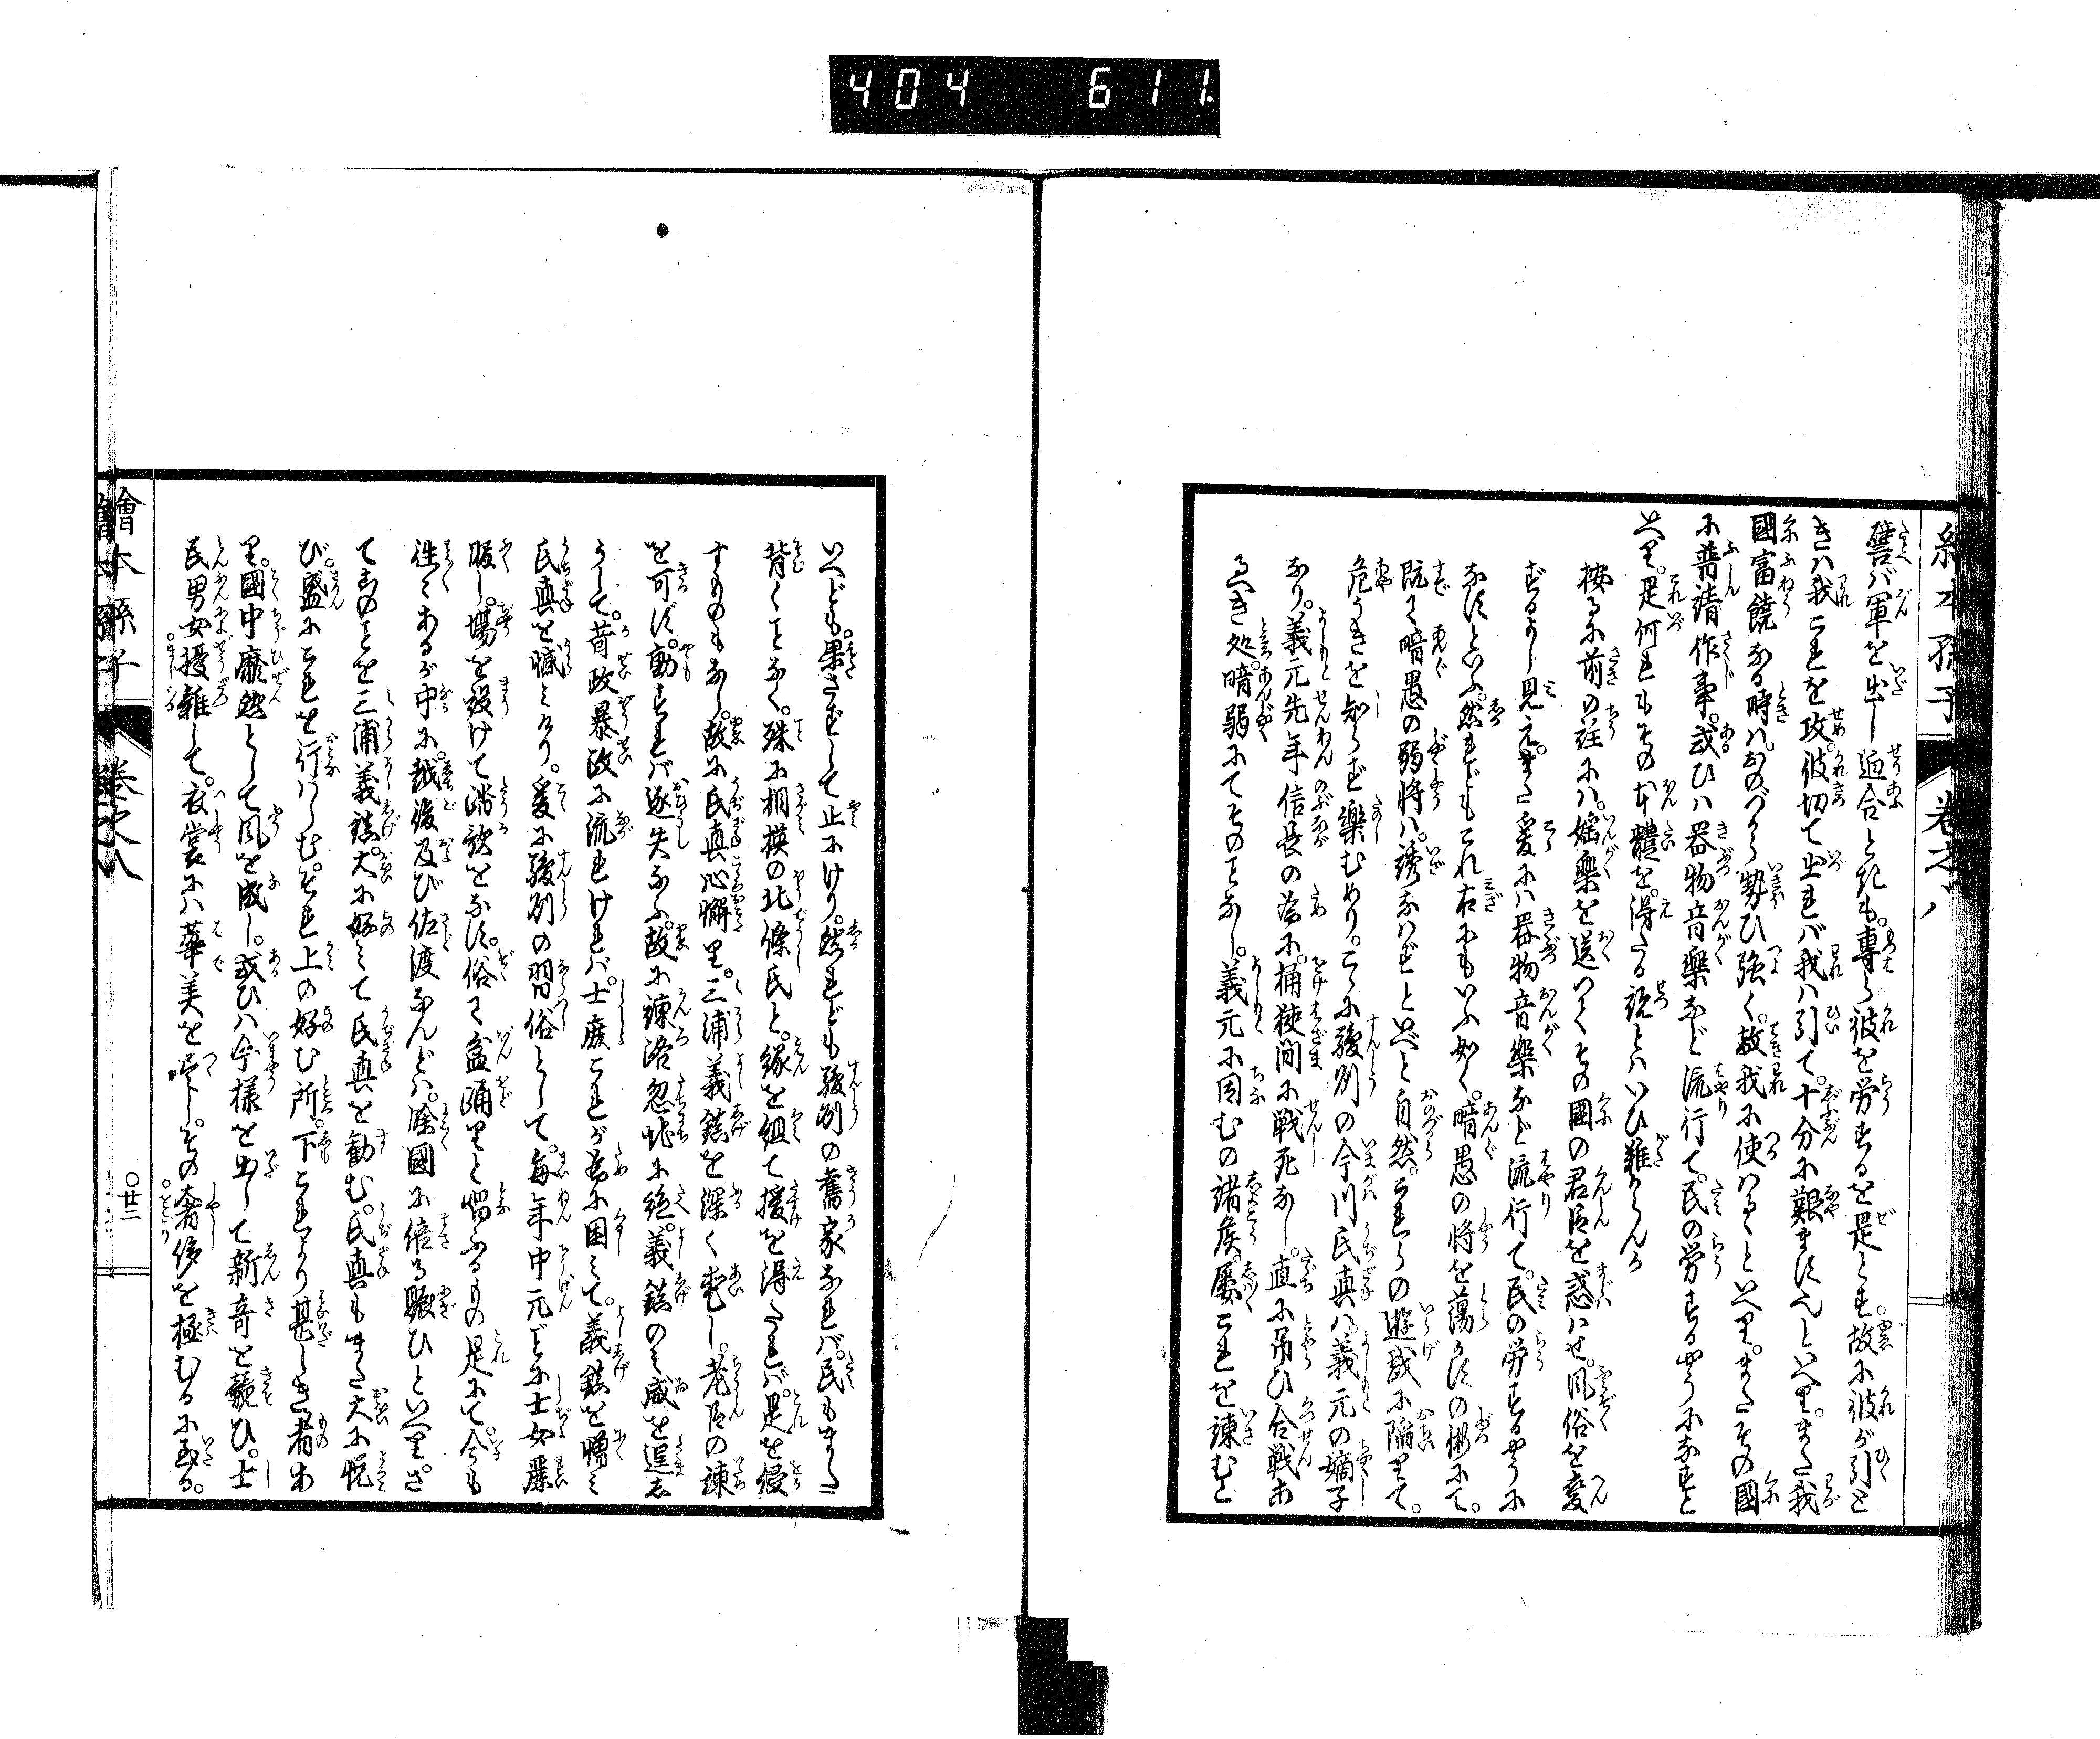 404 611
繪本孫子 卷之八
譬バ軍を出し逼合と花も。專ら彼を労するを是とす。故に彼が引と
きハ我これを攻。彼切て出れバ我ハ引て。十分に艱ますべしといへり。また我
國富饒なる時ハ。おのづから勢ひ強く。敵我に使ハるゝといへり。またその國
に普請作事。或ひハ器物音樂など流行て。民の労するやうになすと
いへり。是何れもその本體を。得たる説とハいひ難からんか
按るに前の註にハ。婬樂を送つてその國の君臣を惑ハせ。風俗を変
ずるよし見え。また爰にハ器物音樂など流行て。民の労するやうに
なすといふ。然れどもこれ右にもいふ如く。暗愚の將を蕩かすの術にて。
既に暗愚の弱將ハ。誘ハずといへど自然。これらの遊戯に陥りて。
危うきを知らず樂むめり。こゝに駿州の今川氏真ハ。義元の嫡子
なり。義元先年信長の為に。桶狹間に戦死なし。直に弔ひ合戦あ
るべき処。暗弱にてそのことなし。義元に因むの諸矦。屡これを諌むと
いへども。果さずして止にけり。然れども駿州の舊家なれバ。民もまた
背くことなく。殊に相摸の北條氏と。縁を組て援を得たれバ。是を侵
すものもなし。故に氏真心懈り。三浦義鎮を深く愛し。老臣の諫
を可ず。動すれバ逐失なふ。故に諫路忽地に絶。義鎮のミ威を逞し
うして。苛政暴政に流れけれバ。士庶これが為に困ミて。義鎮を憎ミ
氏真を憾ミけり。爰に駿州の習俗として。每年中元どに士女羅
服し。場を設けて踏歌をなす。俗に盆踊りと唱ふるもの是にて。今も
往々あるが中に。越後及び佐渡なんどハ。餘國に倍る賑ひといへり。さ
てこのことを三浦義鎮。大に好ミて氏真を勧む。氏真もまた大に悦
び。盛にこれを行ハしむ。それ上の好む所。下これより甚しき者あ
り。國中靡然として風を成し。或ひハ今様を出して新奇を競ひ。士
民男女擾雜して。衣裳にハ華美を尽し。その奢侈を極むるに至る。
繪本孫子 卷之八 〇廿二